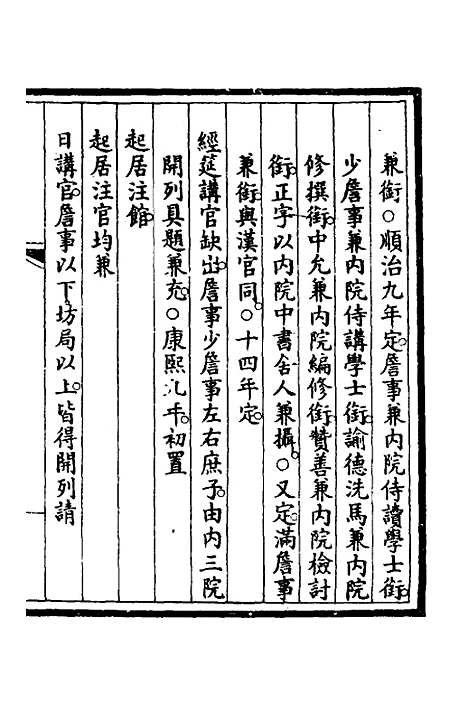 兼銜○順治九年定詹事兼内院侍讀學士銜
少詹事兼内院侍講學士銜諭德洗馬兼内院
修撰銜中允兼内院編修銜贊善兼内院檢討
銜正字以内院中書舍人兼攝○又定滿詹事
兼銜與漢官同○十四年定
經筵講官缺出詹事少詹事左右庶子由内三院
開列具題兼充○康熙九年初置
起居注館
起居注官均兼
日講官詹事以下坊局以上皆得開列請